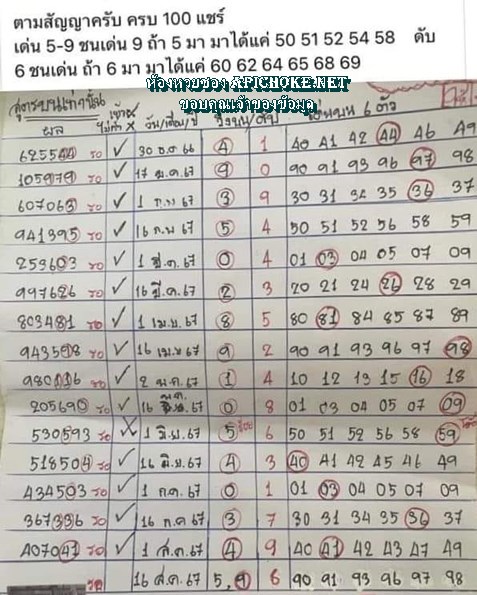 ตามสัญญาครับ ครบ 100 แชร์
เด่น 5-9 ชนเด่น 9 ถ้า 5 มา มาได้แค่ 50 51 52 54 58 ดับ
6 ชนเด่น ถ้า 6 มา มาได้แค่ 60 62 64 65 68 69
ห้องหวยซอง APICHOKE.NET
ขอบคุณเจ้าของข้อมูล
สูตรบนเท่านั้น เข้า✓ วัน/เดือน/ปี วิ่งบน/ดับ 6 ตัว
ผล ไม่เข้า ×
625544 รอ ✓ 30 ธ.ค 66 4 1 40 41 42 44 46 49
105979 รอ ✓ 17 ม.ค 67 9 0 90 91 93 96 97 98
607063 รอ ✓ 1 ก.พ 67 3 9 30 31 34 35 36 37
941395 รอ ✓ 16 ก.พ 67 5 4 50 51 52 56 58 59
253603 รอ ✓ 1 มี.ค. 67 0 4 01 03 04 05 07 09
997626 รอ ✓ 16 มี.ค. 67 2 3 20 21 24 26 28 29
803481 รอ ✓ 1 เม.ย. 67 8 5 80 81 84 85 87 89
943598 รอ ✓ 16 เม.ย 67 9 2 90 91 93 96 97 98
980116 รอ ✓ 2 พ.ค. 67 1 4 10 12 13 15 16 18
205690 รอ ✓ 16 พ.ค. 67 0 8 01 03 04 05 07 09
530593 รอ × 1 มิ.ย. 67 5 6 50 51 52 56 58 59
518504 รอ ✓ 16 มิ.ย. 67 4 3 40 41 42 45 46 49
434503 รอ ✓ 1 ก.ค. 67 0 1 01 03 04 05 07 09
367336 รอ ✓ 16 ก.ค 67 3 7 30 31 34 35 36 37
407041 รอ ✓ 1 ส.ค. 67 4 9 40 41 42 43 47 49
รอ 16 ส.ค. 67 5,9 6 90 91 93 96 97 98